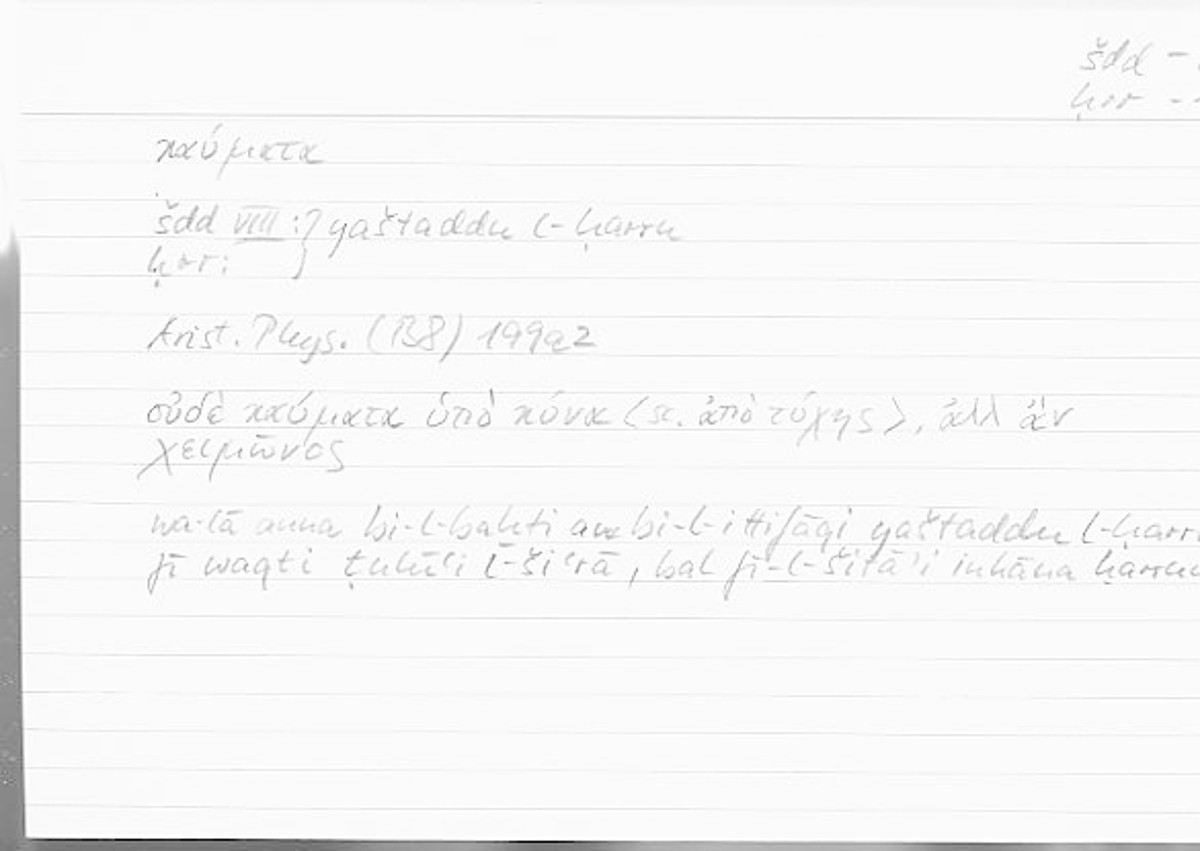 šdd -
ḥrr --
καύματα
šdd VIII :} yaštaddu l-ḥarru
ḥrr:
Arist. Phys. (B8) 199a2
οὐδὲ καύματα ὑπὸ κύνα <sc. ἀπὸ τύχης>, ἀλλ ἂν
χειμῶνος
wa-lā anna bi-l-baḫti au bi-l-ittifāqi yaštaddu l-ḥarru
fī waqti ṭulūʿi š-šiʿrā, bal fī-l-šitāʾi in kāna ḥarrun